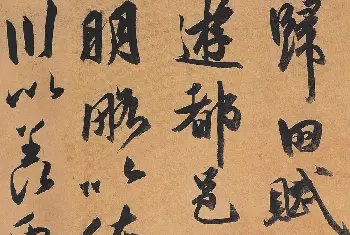 歸田賦
遊都邑
明略以
川以羨